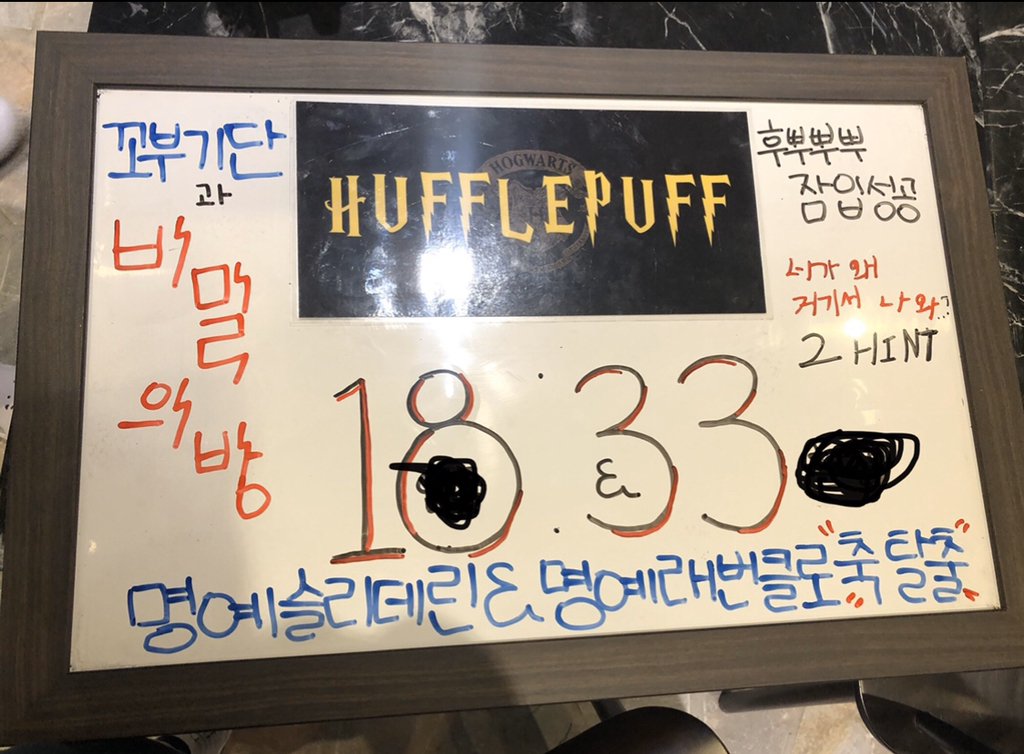 꼬부기단
과
비밀
의방
HOGWARTS
HUFFLEPUFF
후뿌뿌뿌
잠입성공
너가 왜
저기서 나와?
2 HINT
18:33
&
명예슬리데린 & 명예래번클로 "축 탈출"